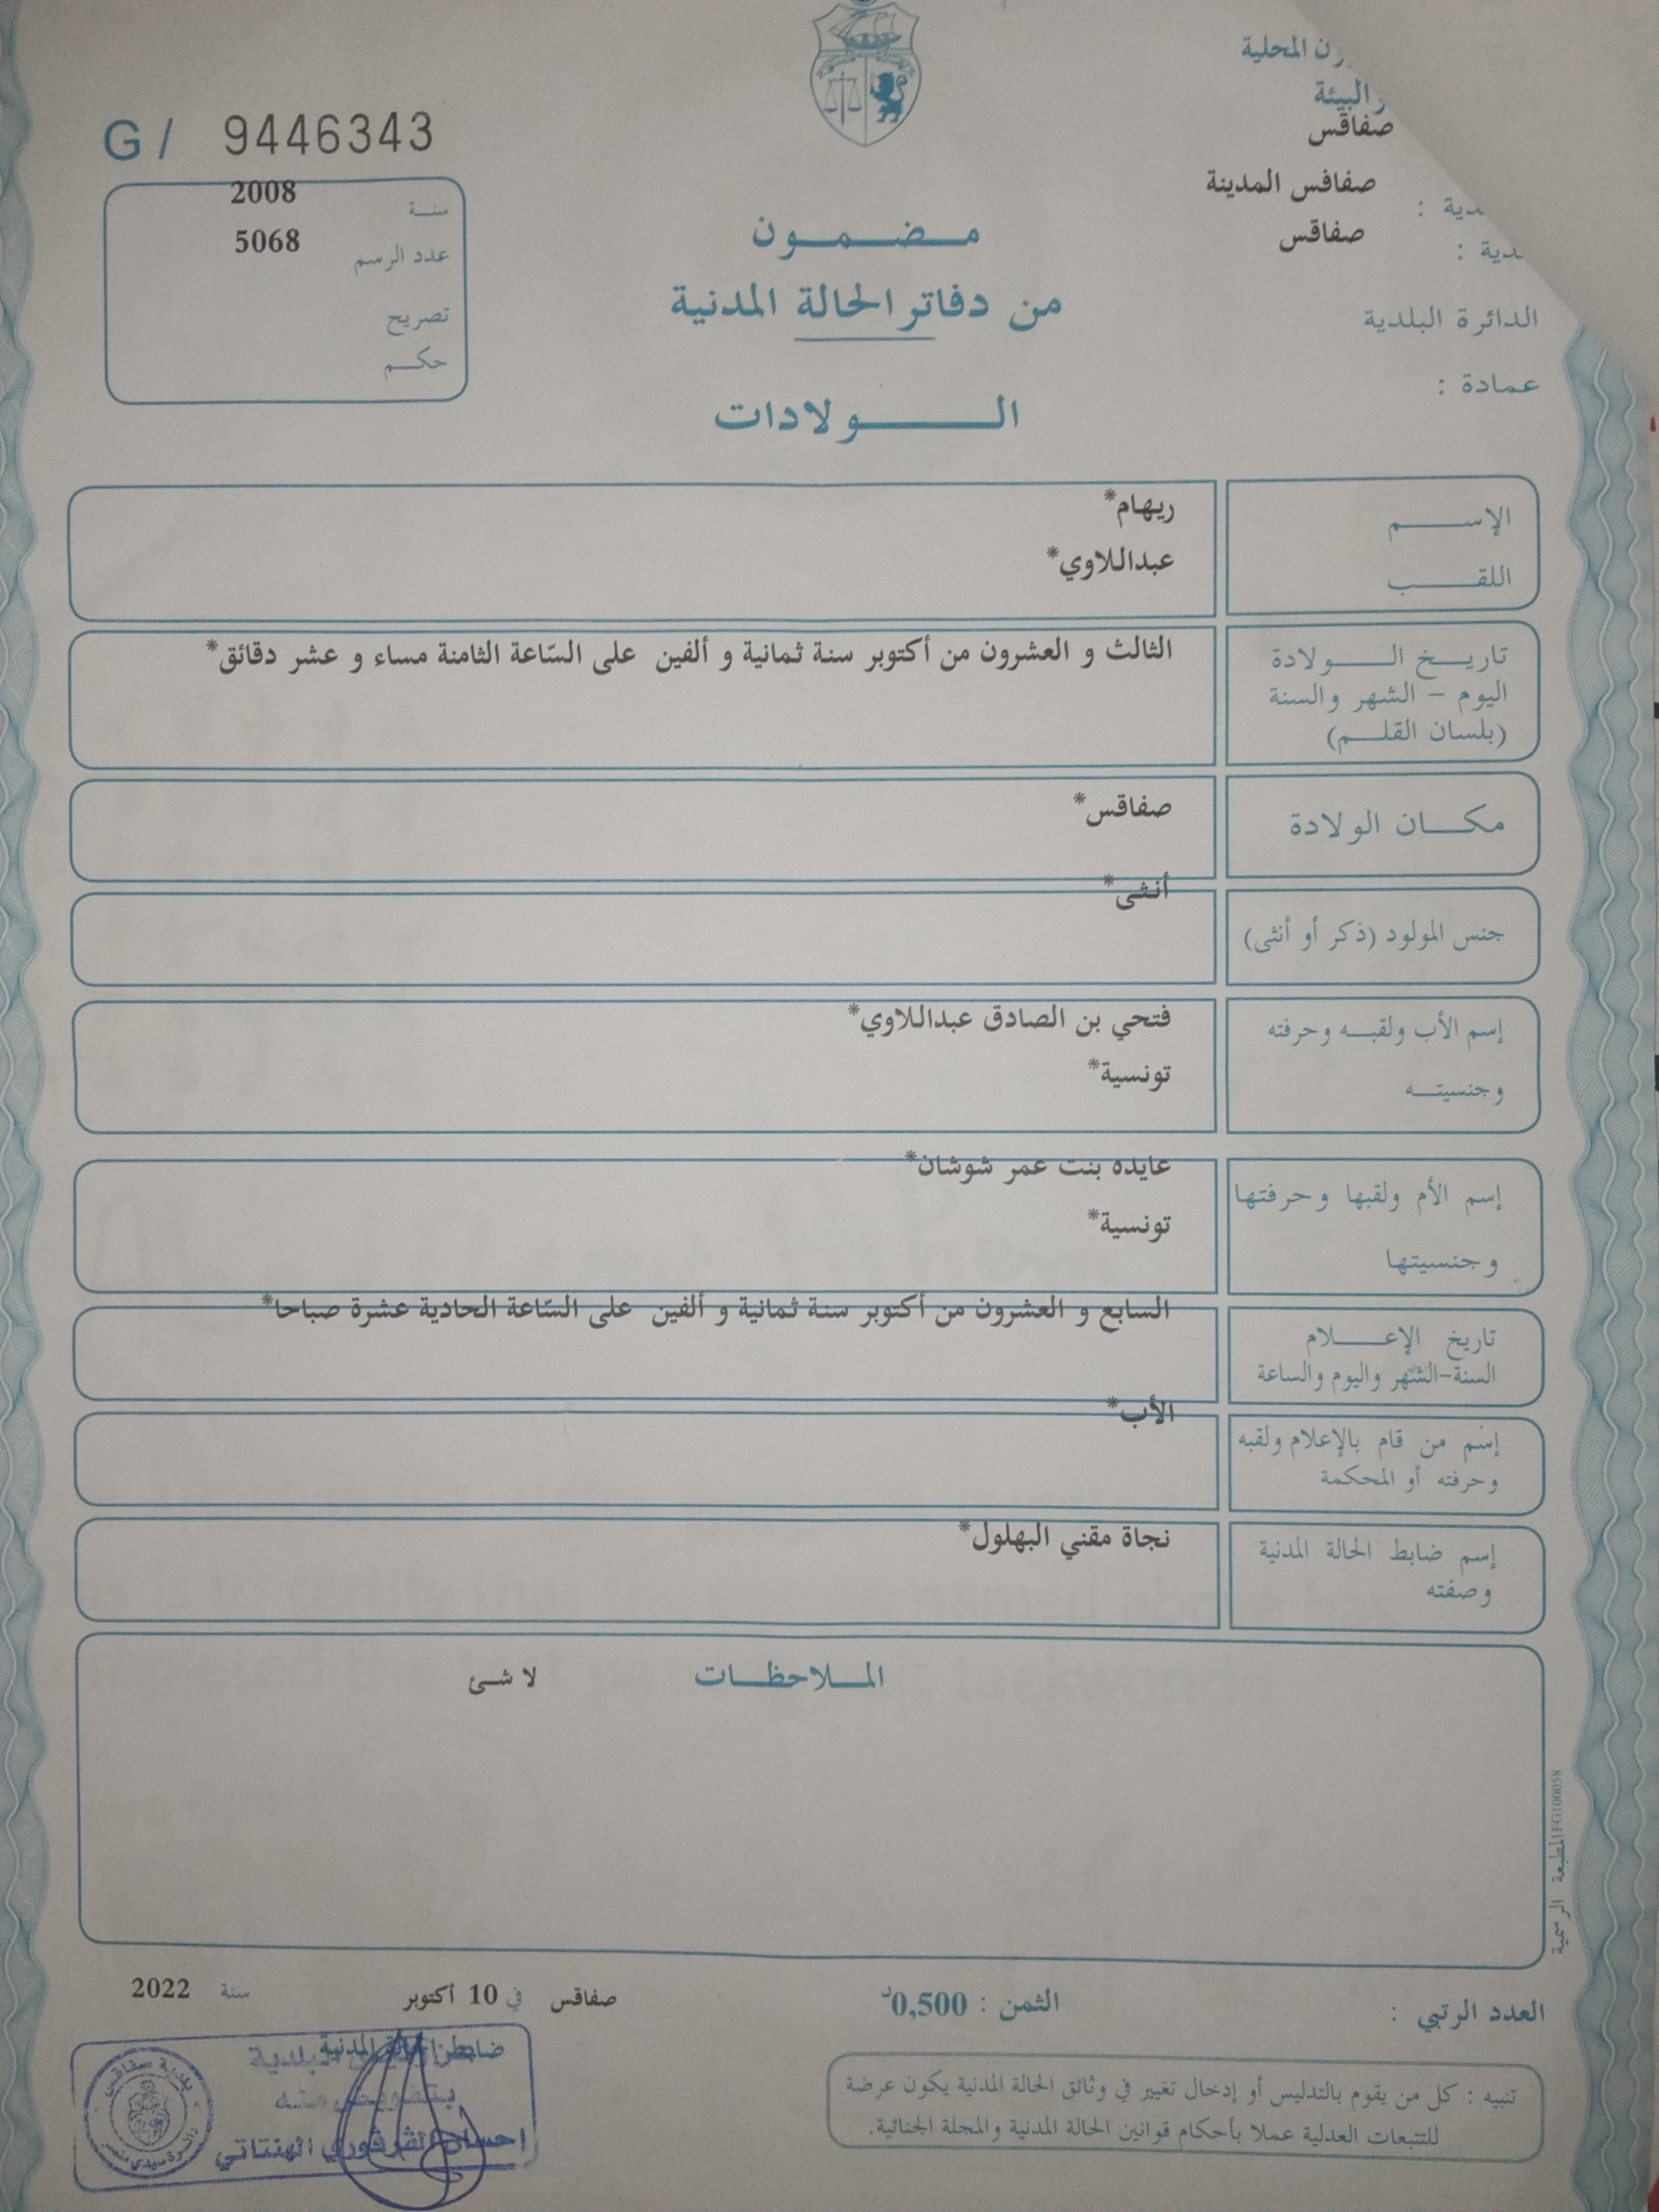 ون المحلية
البيئة
صفاقس
صفافس المدينة
صفاقس
الدائرة البلدية
عمادة :
G / 9446343
سنة 2008
عدد الرسم 5068
تصريح
حكم
مضمون
من دفاتر الحالة المدنية
الولادات
الإسم ريهام*
اللقب عبداللاوي*
تاريخ الولادة الثالث و العشرون من أكتوبر سنة ثمانية و ألفين على السّاعة الثامنة مساء و عشر دقائق*
اليوم – الشهر والسنة
(بلسان القلم)
مكان الولادة صفاقس*
جنس المولود (ذكر أو أنثى) أنثى*
إسم الأب ولقبه وحرفته فتحي بن الصادق عبداللاوي*
وجنسيته تونسية*
إسم الأم ولقبها وحرفتها عايده بنت عمر شوشان*
وجنسيتها تونسية*
تاريخ الإعلام السابع و العشرون من أكتوبر سنة ثمانية و ألفين على السّاعة الحادية عشرة صباحا*
السنة-الشهر واليوم والساعة
إسم من قام بالإعلام ولقبه الأب*
وحرفته أو المحكمة
إسم ضابط الحالة المدنية نجاة مقني البهلول*
وصفته
الملاحظات لا شئ
المطبعة الرسمية
العدد الرتبي :
الثمن : 0,500د
صفاقس في 10 أكتوبر سنة 2022
ضابط الحالة المدنية
بتفويض منه
الهنتاتي
بلدية صفاقس
تنبيه : كل من يقوم بالتدليس أو إدخال تغيير في وثائق الحالة المدنية يكون عرضة
للتتبعات العدلية عملا بأحكام قوانين الحالة المدنية والمجلة الجنائية.